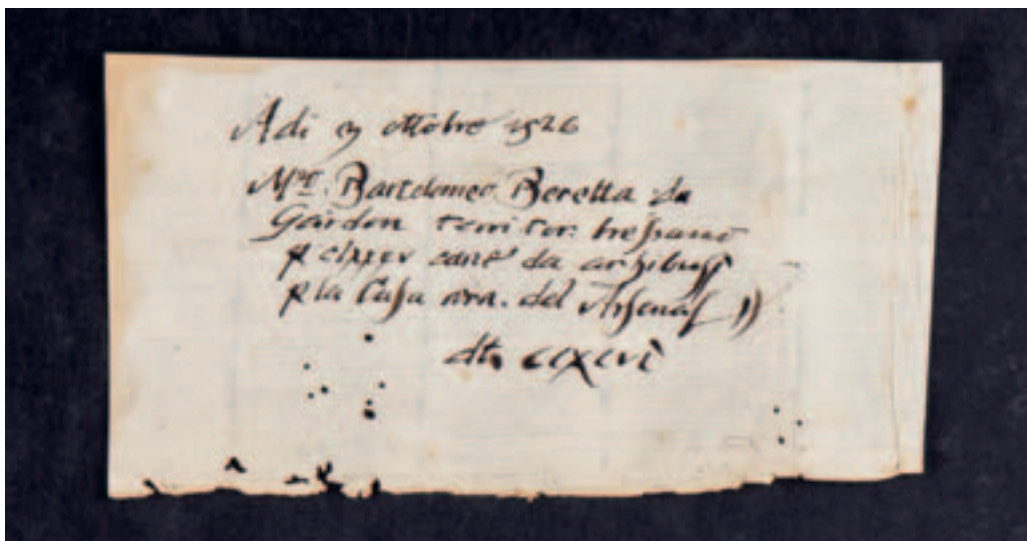 Adi 3 ottobre 1526
Mro. Bartolomeo Beretta da
Gardon territor: bressano
p clxxxv cane da archibusi
p la Casa nra. del Arsenal
dti. cclxxxxvi